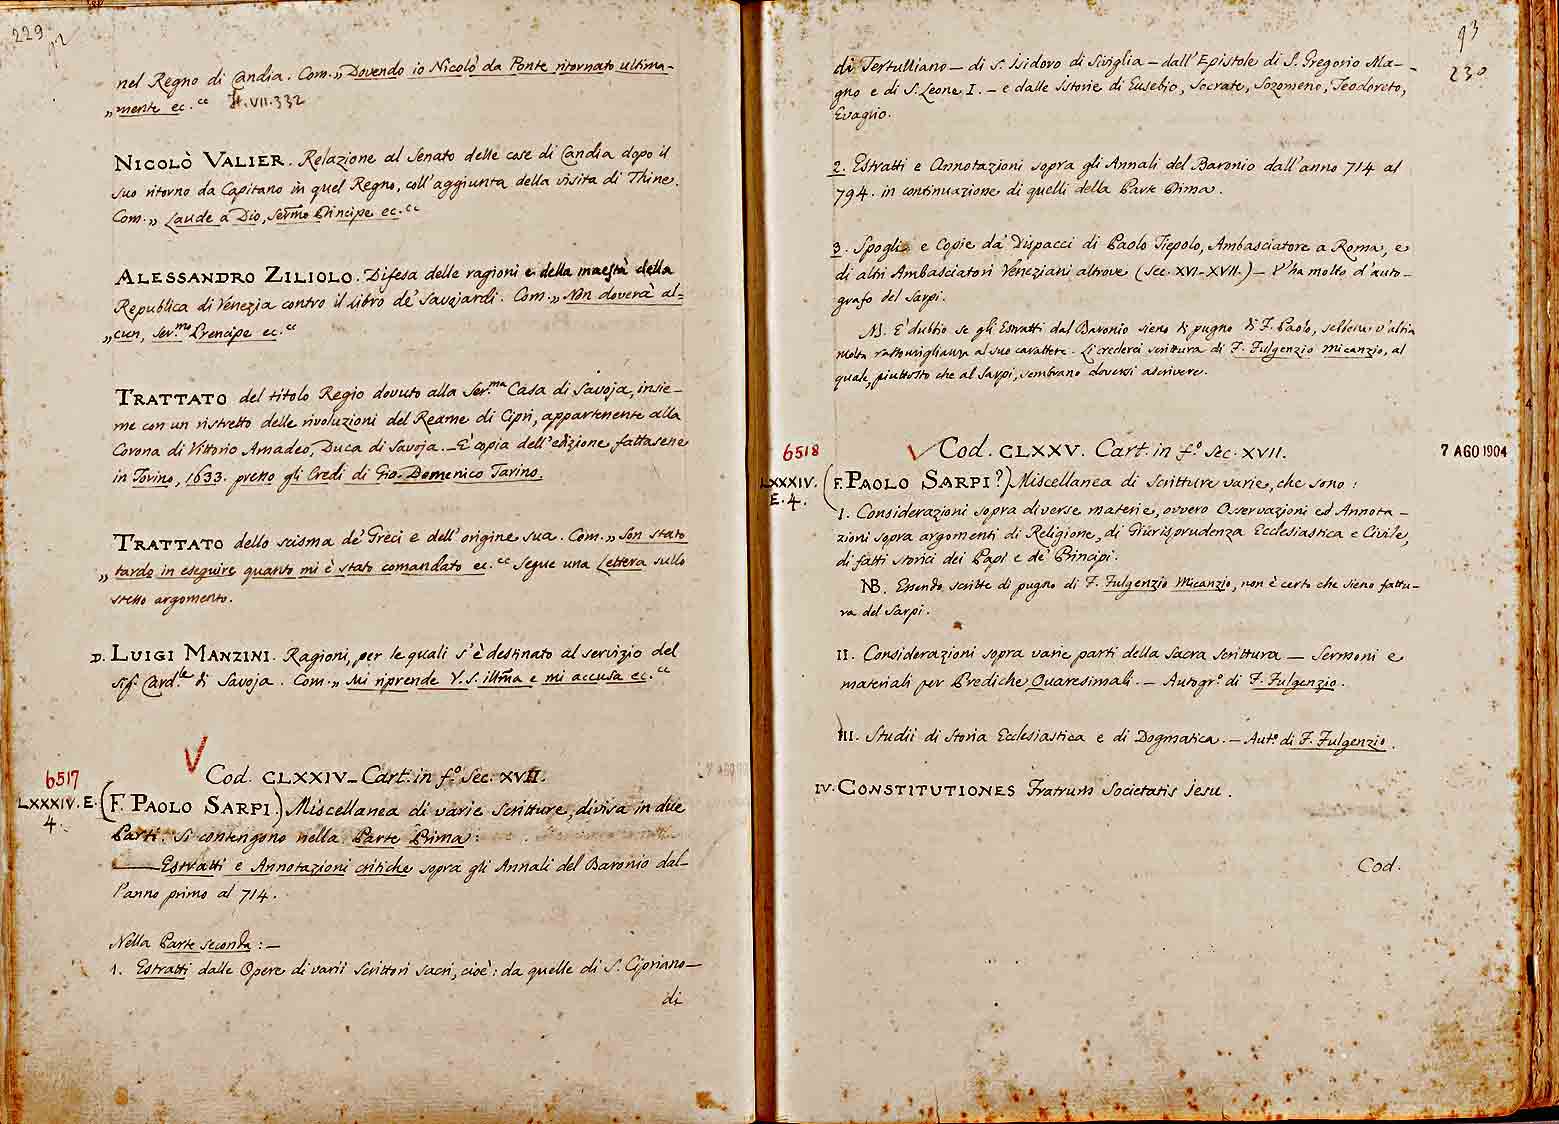 229
92
nel Regno di Candia. Com. „ Dovendo io Nicolò da Ponte ritornato ultima-
„ mente ec.cc H.VII.332
NICOLÒ VALIER. Relazione al Senato delle cose di Candia dopo il
suo ritorno da Capitano in quel Regno, coll'aggiunta della visita di Thine.
Com. „ Laude a Dio, sermo Principe ec.cc
ALESSANDRO ZILIOLO. Difesa delle ragioni e della maestà della
Republica di Venezia contro il Libro de' Savojardi. Com. „ Non doverà al=
„ cun, Ser.mo Prencipe ec.c
TRATTATO del titolo Regio dovuto alla Ser.ma Casa di Savoja, insie-
me con un ristretto delle rivoluzioni del Reame di Cipri, appartenente alla
Corona di Vittorio Amadeo, Duca di Savoja. - E' copia dell'edizione fattasene
in Torino, 1633. presso gli Eredi di Gio. Domenico Tarino.
TRATTATO dello scisma de' Greci e dell'origine sua. Com. „ Son stato
„ tardo in eseguire quanto mi è stato comandato ec.cc Segue una Lettera sullo
stesso argomento.
D. LUIGI MANZINI. Ragioni, per le quali s'è destinato al servizio del
Sig. Card.le di Savoja. Com. „ Mi riprende V. S. illma e mi accusa ec.cc
Cod. CLXXIV - Cart. in f.o Sec. XVII.
6517
LXXXIV. E. (F. PAOLO SARPI.) Miscellanea di varie scritture, divisa in due
4. Parti. Si contengono nella Parte Prima:
— Estratti e Annotazioni critiche sopra gli Annali del Baronio dal-
l'anno primo al 714.
Nella Parte seconda: —
1. Estratti dalle Opere di varii scrittori sacri, cioè: da quelle di S. Cipriano —
di
93
230
di Tertulliano — di S. Isidoro di Siviglia — dall'Epistole di S. Gregorio Ma-
gno e di S. Leone I. — e dalle Istorie di Eusebio, Socrate, Sozomeno, Teodoreto,
Evagrio.
2. Estratti e Annotazioni sopra gli Annali del Baronio dall'anno 714 al
794. in continuazione di quelli della Parte Prima.
3. Spogli e Copie da' Dispacci di Paolo Tiepolo, Ambasciatore a Roma, e
di altri Ambasciatori Veneziani altrove (sec. XVI-XVII.) — V'ha molto d'auto-
grafo del Sarpi.
NB. E' dubbio se gli Estratti dal Baronio sieno di pugno di F. Paolo, sebbene v'abbia
molta rassomiglianza al suo carattere. Li crederei scrittura di F. Fulgenzio Micanzio, al
quale, piuttosto che al Sarpi, sembrano doversi ascrivere.
6518 Cod. CLXXV. Cart. in f.o Sec. XVII. 7 AGO 1904
LXXXIV. (F. PAOLO SARPI?) Miscellanea di Scritture varie, che sono:
E. 4.
I. Considerazioni sopra diverse materie, ovvero Osservazioni ed Annota-
zioni sopra argomenti di Religione, di Giurisprudenza Ecclesiastica e Civile,
di fatti storici dei Papi e de' Principi.
NB. Essendo scritte di pugno di F. Fulgenzio Micanzio, non è certo che sieno fattu-
ra del Sarpi.
II. Considerazioni sopra varie parti della Sacra Scrittura — Sermoni e
materiali per Prediche Quaresimali. — Autogr.o di F. Fulgenzio.
III. Studii di Storia Ecclesiastica e di Dogmatica. — Aut.o di F. Fulgenzio.
IV. CONSTITUTIONES Fratrum Societatis Jesu.
Cod.